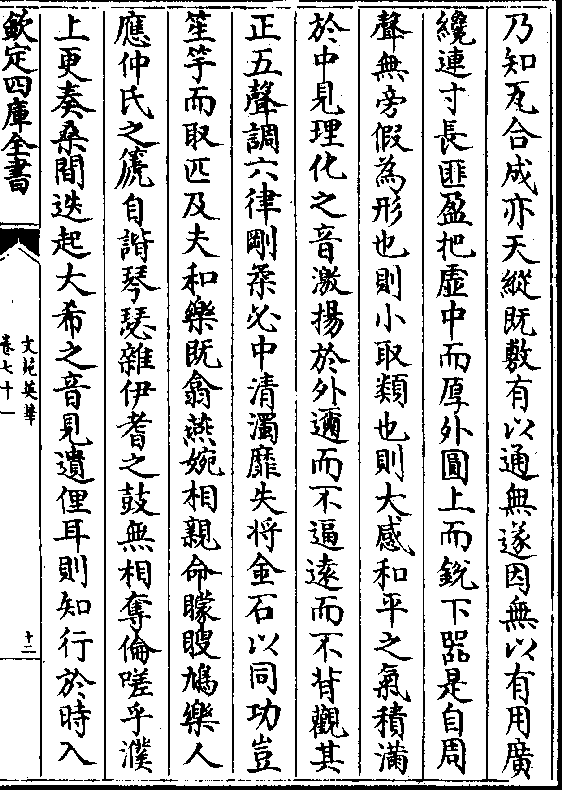 乃知瓦合成亦天縱既敷有以通無遂因無以有用廣
纔連寸長匪盈把虛中而厚外圓上而銳下器是自周
聲無旁假為形也則小取類也則大感和平之氣積滿
於中見理化之音激揚於外邇而不逼遠而不背觀其
正五聲調六律剛柔必中清濁靡失将金石以同功豈
笙竽而取匹及夫和樂既翕燕婉相親命矇瞍鳩樂人
應仲氏之篪自諧琴瑟雜伊耆之鼓無相奪倫嗟乎濮
上更奏桑間迭起大希之音見遺俚耳則知行於時入
欽定四庫全書
文苑英華
卷七十一
十二